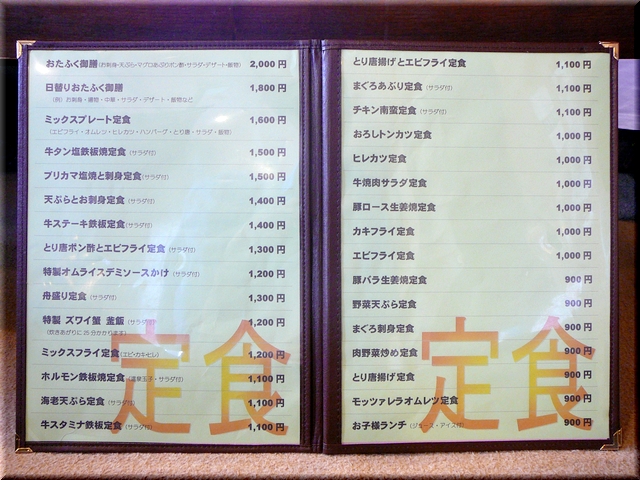 おたふく御膳(お刺身・天ぷら・マグロあぶりポン酢・サラダ・デザート・飯物) 2,000 円
日替りおたふく御膳 1,800 円
(例) お刺身・煮物・中華・サラダ・デザート・飯物など
ミックスプレート定食 1,600 円
(エビフライ・オムレツ・ヒレカツ・ハンバーグ・とり唐・サラダ・飯物)
牛タン塩鉄板焼定食(サラダ付) 1,500 円
ブリカマ塩焼と刺身定食(サラダ付) 1,500 円
天ぷらとお刺身定食(サラダ付) 1,400 円
牛ステーキ鉄板定食(サラダ付) 1,400 円
とり唐ポン酢とエビフライ定食(サラダ付) 1,300 円
特製オムライスデミソースかけ(サラダ付) 1,200 円
舟盛り定食(サラダ付) 1,300 円
特製 ズワイ蟹 釜飯(サラダ付) 1,200 円
(炊きあがりに25分かかります)
ミックスフライ定食(エビ・カキ・ヒレ) 1,200 円
ホルモン鉄板焼定食(温泉玉子・サラダ付) 1,100 円
海老天ぷら定食(サラダ付) 1,100 円
牛スタミナ鉄板定食(サラダ付) 1,100 円
定食
とり唐揚げとエビフライ定食 1,100 円
まぐろあぶり定食(サラダ付) 1,100 円
チキン南蛮定食(サラダ付) 1,100 円
おろしトンカツ定食 1,000 円
ヒレカツ定食 1,000 円
牛焼肉サラダ定食 1,000 円
豚ロース生姜焼定食 1,000 円
カキフライ定食 1,000 円
エビフライ定食 1,000 円
豚バラ生姜焼定食 900 円
野菜天ぷら定食 900 円
まぐろ刺身定食 900 円
肉野菜炒め定食 900 円
とり唐揚げ定食 900 円
モッツァレラオムレツ定食 900 円
お子様ランチ(ジュース・アイス付) 900 円
定食